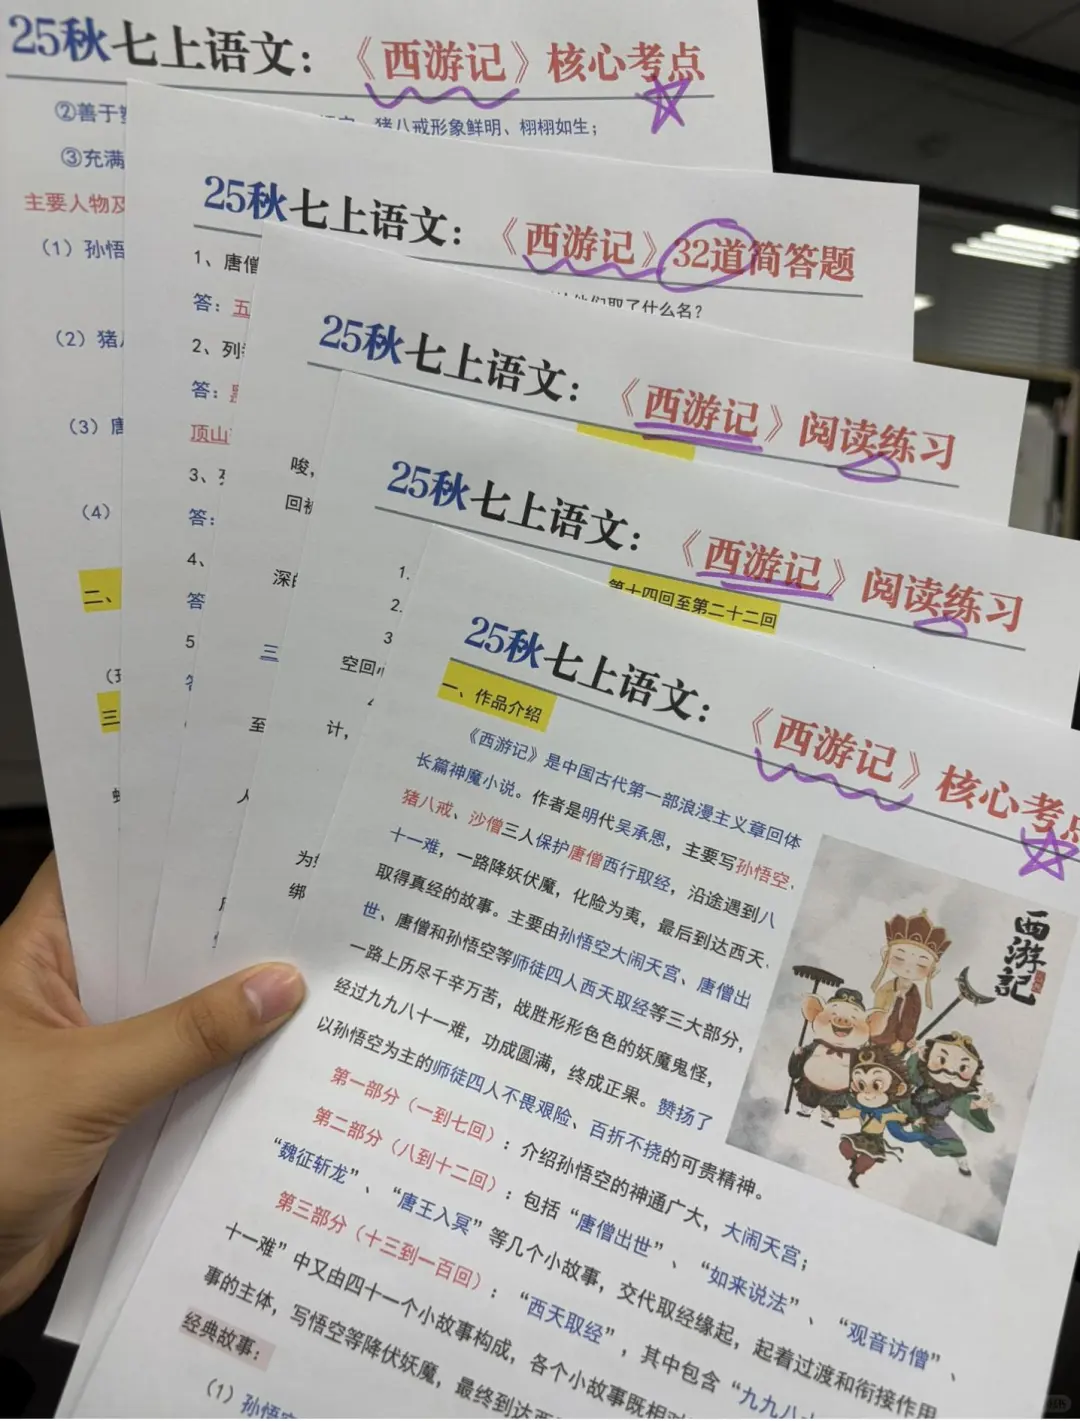 25秋七上语文：《西游记》核心考点
②善于
猪八戒形象鲜明、栩栩如生；
③充满
主要人物及
（1）孙悟
（2）猪八
（3）唐
（4）
二、
三
25秋七上语文：《西游记》32道简答题
1、唐僧
们取了什么名？
答：五
2、列
答：
顶山
3、
答：
4、
答
5
25秋七上语文：《西游记》阅读练习
唆，
回
深
三
至
人
25秋七上语文：《西游记》阅读练习
第十四回至第二十二回
1.
2.
3
空回
计，
为
绑
25秋七上语文：《西游记》核心考点
一、作品介绍
《西游记》是中国古代第一部浪漫主义章回体
长篇神魔小说。作者是明代吴承恩，主要写孙悟空、
猪八戒、沙僧三人保护唐僧西行取经，沿途遇到八
十一难，一路降妖伏魔，化险为夷，最后到达西天、
取得真经的故事。主要由孙悟空大闹天宫、唐僧出
世、唐僧和孙悟空等师徒四人西天取经等三大部分，
一路上历尽千辛万苦，战胜形形色色的妖魔鬼怪，
经过九九八十一难，功成圆满，终成正果。赞扬了
以孙悟空为主的师徒四人不畏艰险、百折不挠的可贵精神。
第一部分（一到七回）：介绍孙悟空的神通广大，大闹天宫；
第二部分（八到十二回）：包括“唐僧出世”、“如来说法”、“观音访僧”、
“魏征斩龙”、“唐王入冥”等几个小故事，交代取经缘起，起着过渡和衔接作用
第三部分（十三到一百回）：“西天取经”，其中包含“九九八
十一难”中又由四十一个小故事构成，各个小故事既相对
事的主体，写悟空等降伏妖魔，最终到达西
经典故事：
（1）孙悟空
西游記